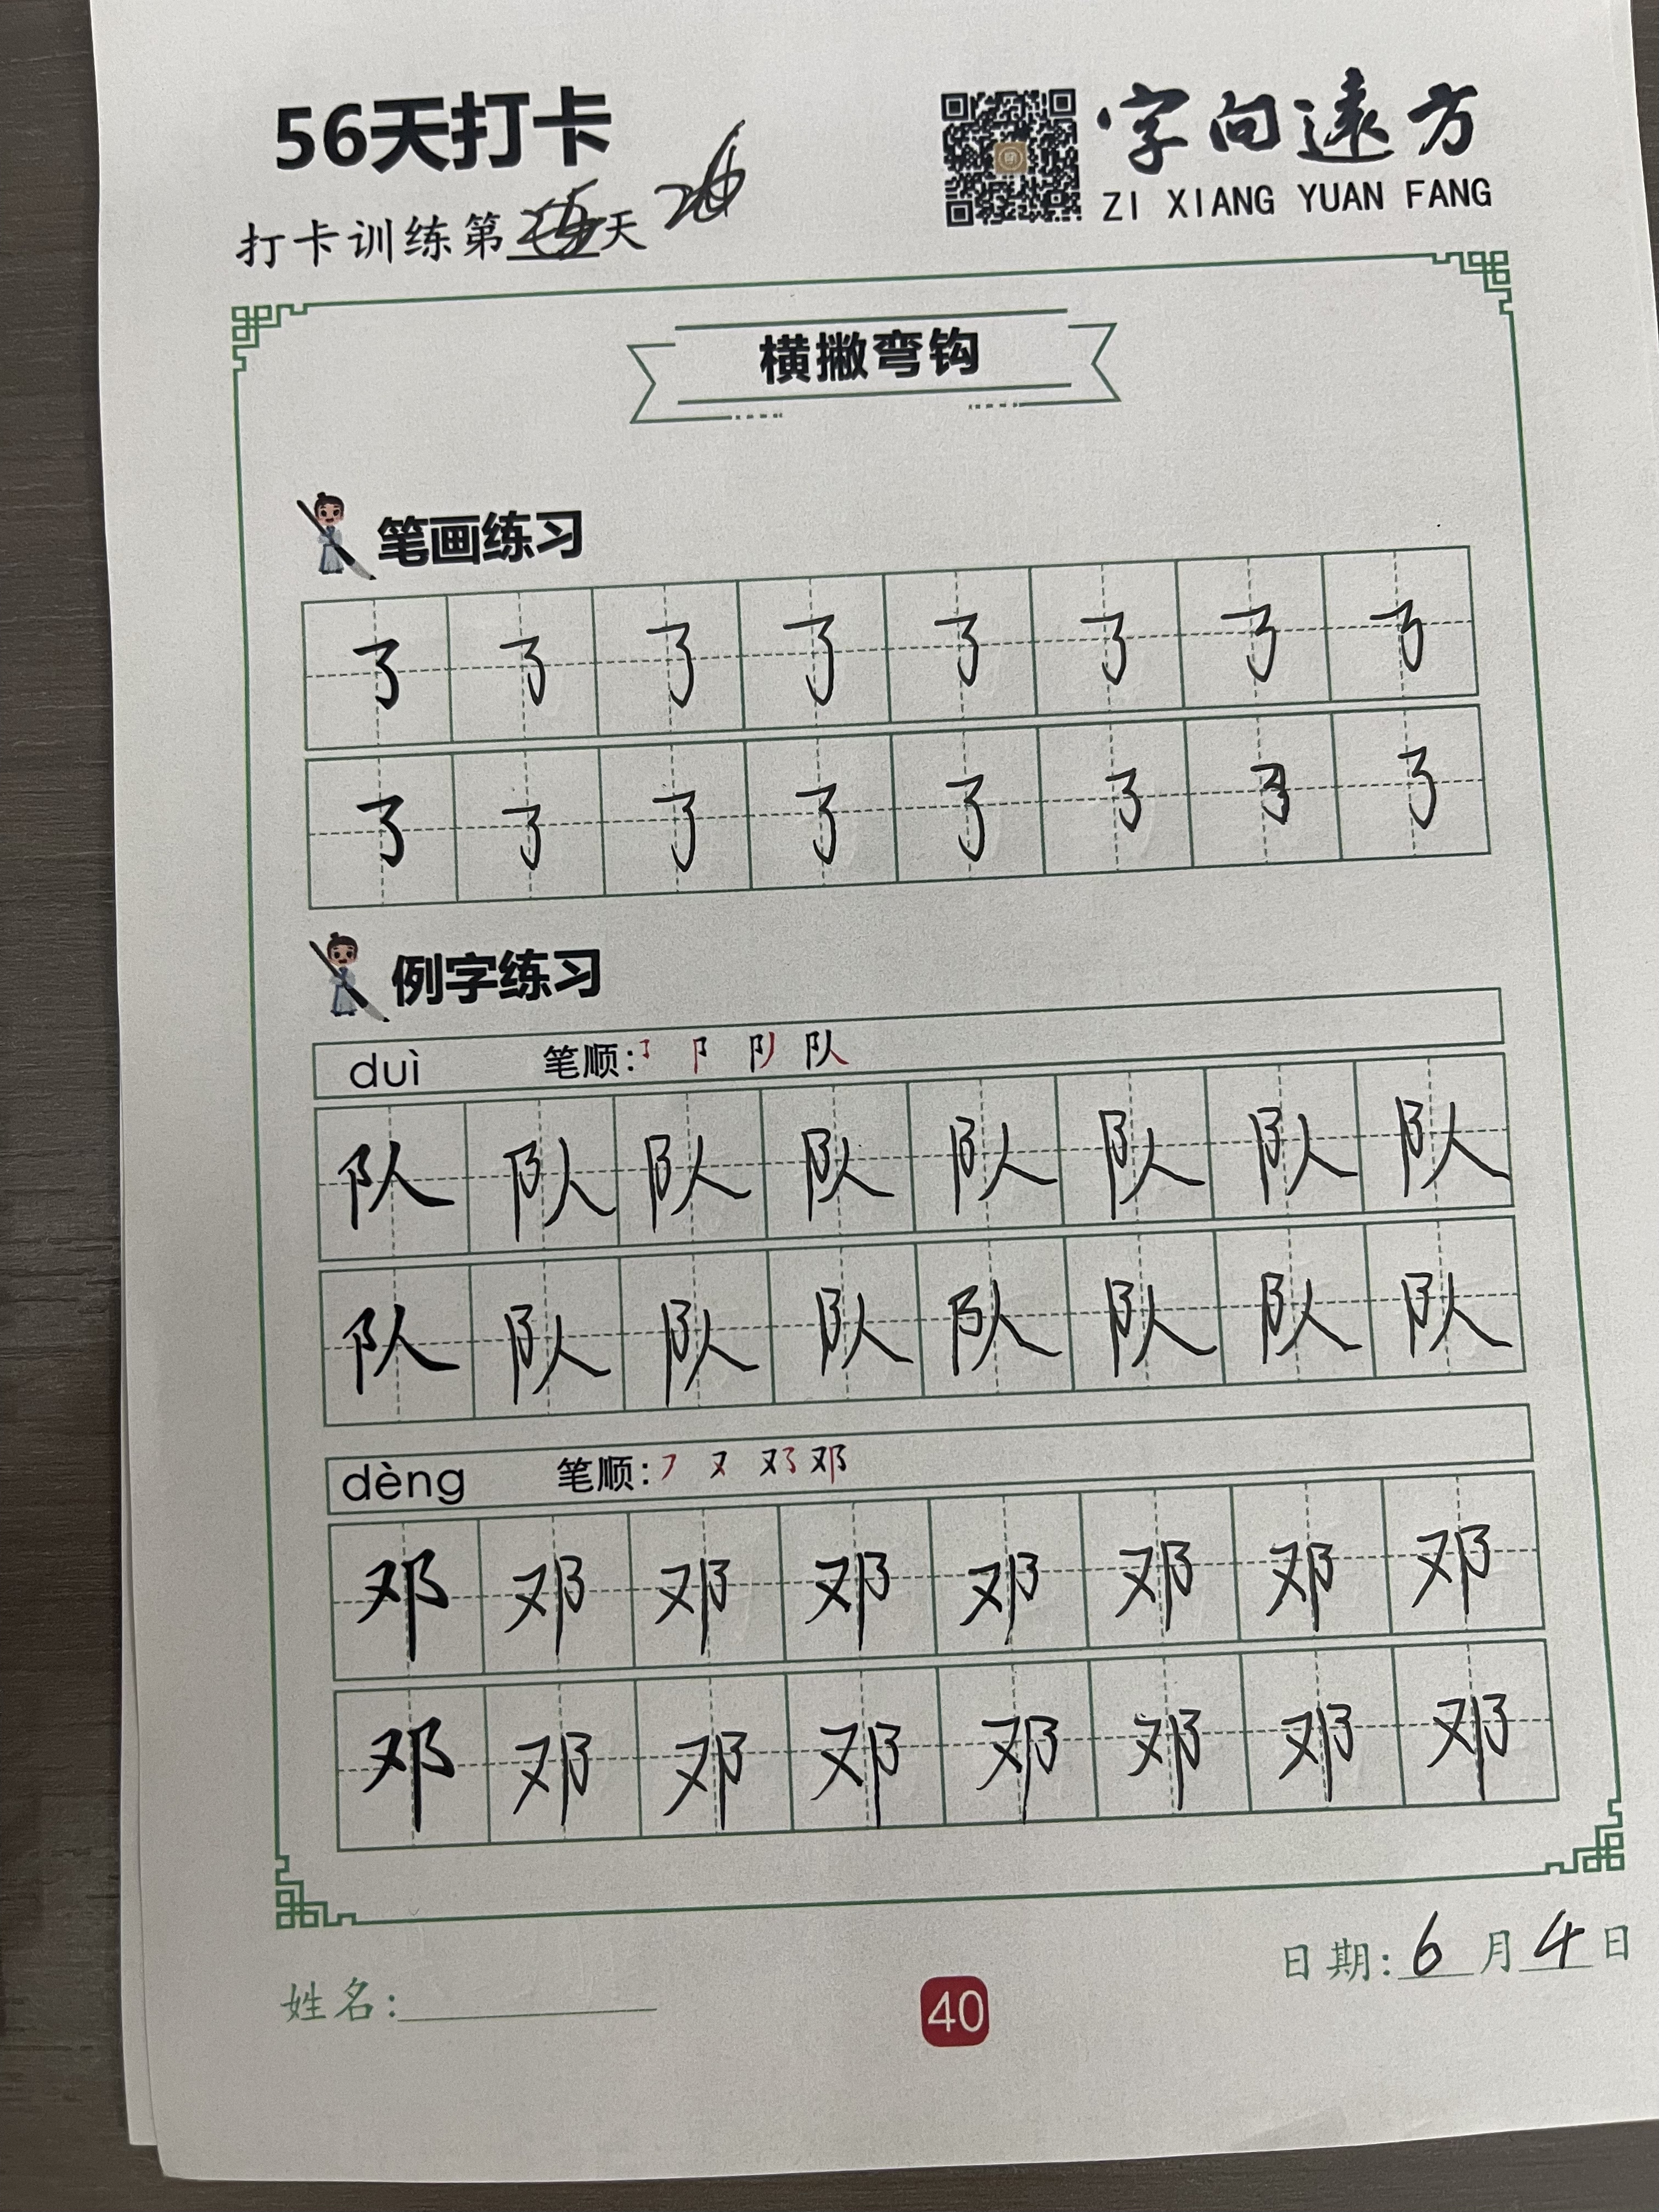 56天打卡
字向遠方
ZI XIANG YUAN FANG
打卡训练第25天 26
横撇弯钩
笔画练习
㇌ ㇌ ㇌ ㇌ ㇌ ㇌ ㇌ ㇌
㇌ ㇌ ㇌ ㇌ ㇌ ㇌ ㇌ ㇌
例字练习
duì 笔顺: ㇌ 阝 队
队 队 队 队 队 队 队 队
队 队 队 队 队 队 队 队
dèng 笔顺: ㇇ 又 邓
邓 邓 邓 邓 邓 邓 邓 邓
邓 邓 邓 邓 邓 邓 邓 邓
姓名:
日期: 6 月 4 日
40